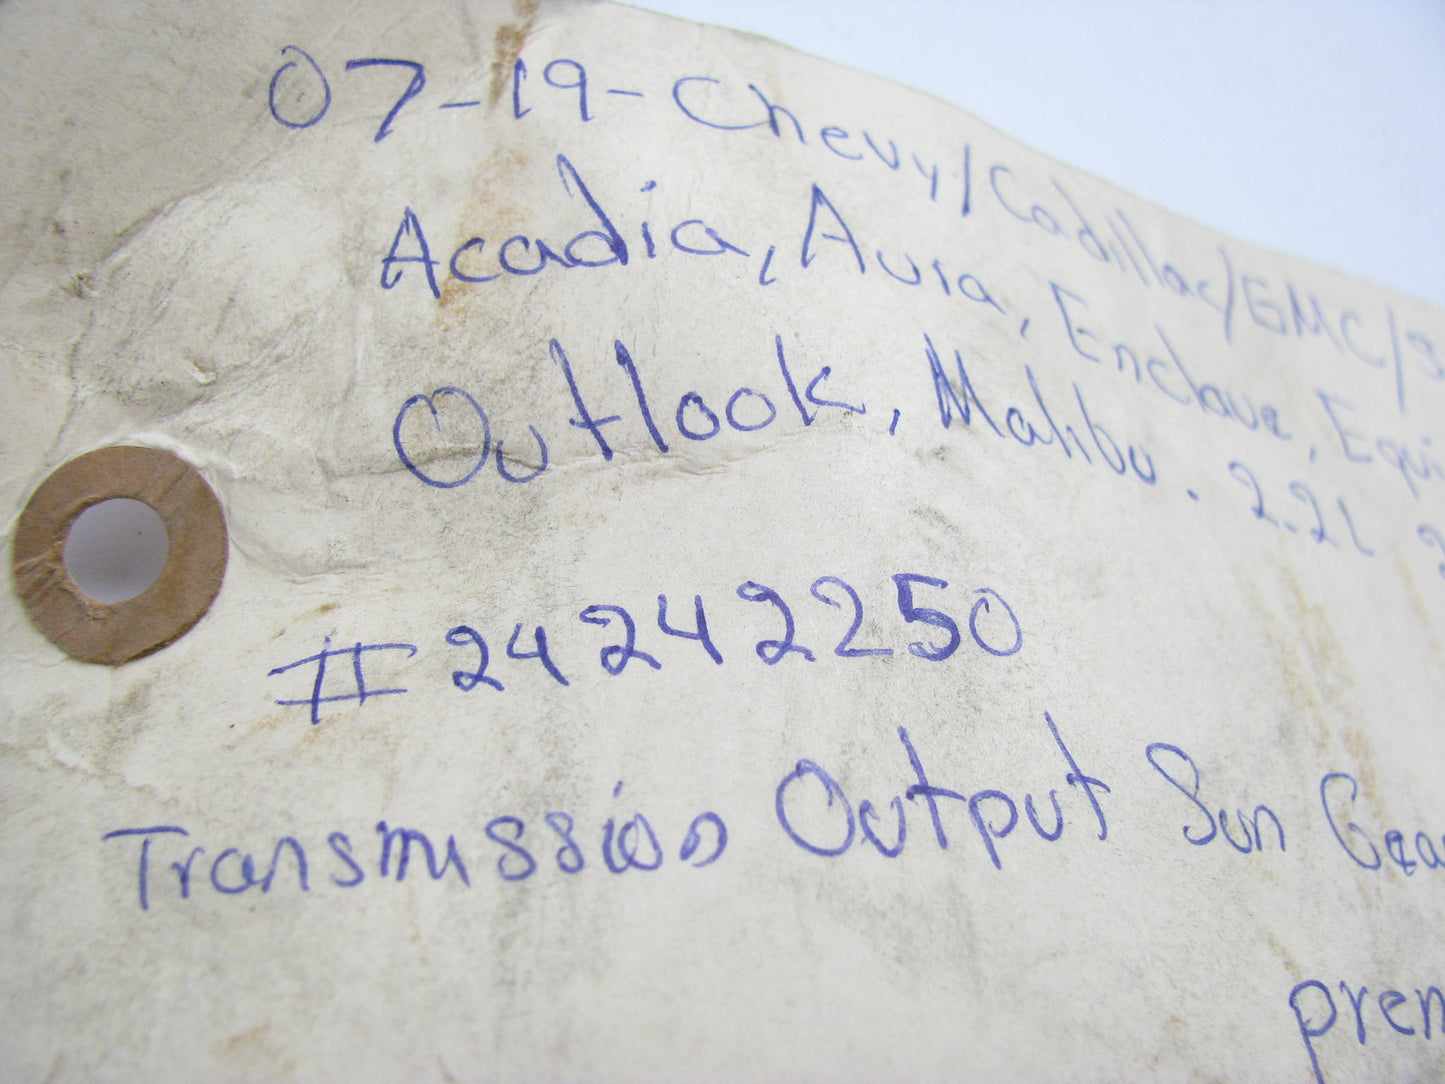 07-19-Chevy/Cadillac/GMC/S
Acadia, Aura, Enclave, Equi
Outlook, Malibu. 2.2L 2
#24242250
Transmission Output Sun Gea
prem